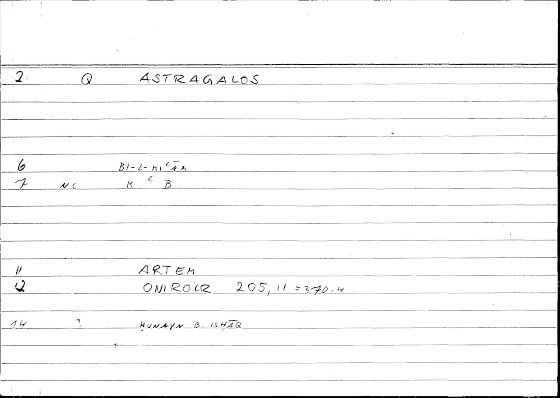 2 Q ASTRAGALOS
6 BI-L-KIʿĀB
7 NC K ʿ B
11 ARTEM
12 ONIROCR 205,11 = 370.4
14 ? ḤUNAYN B. ISḤĀQ